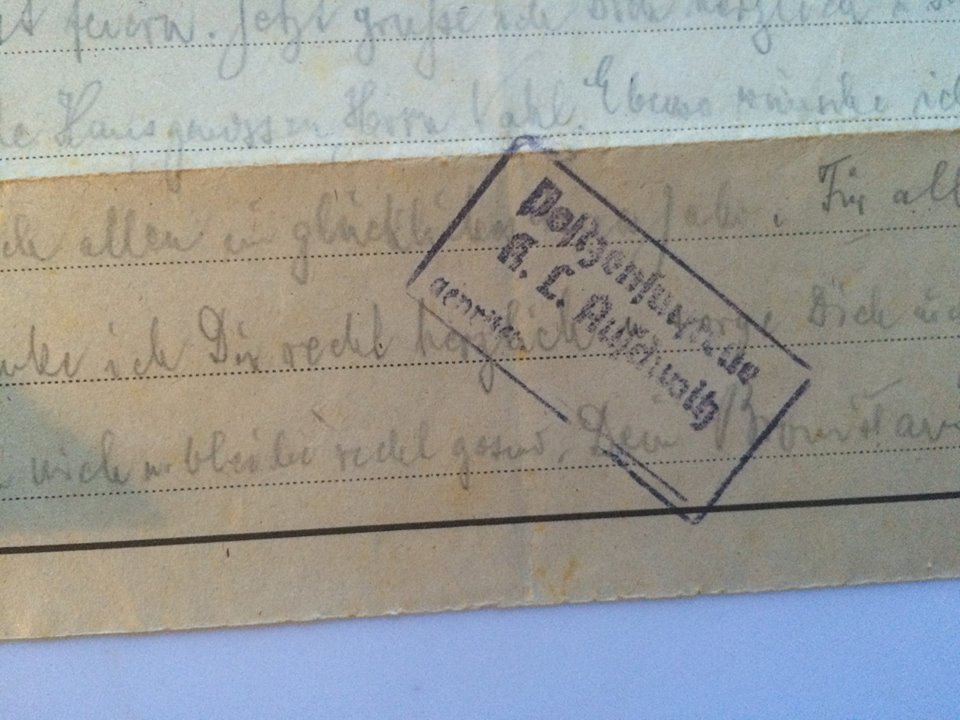 feiern. Jetzt grüße ich Dich herzlich
Hausgenossen Herrn Ebenso wünsche ich
allen ein glückliches Jahr. Für all
ich Dir recht herzlich sorge Dich
mich u bleibe recht gesund. Dein
Postzensurstelle
K. L. Auschwitz
geprüft